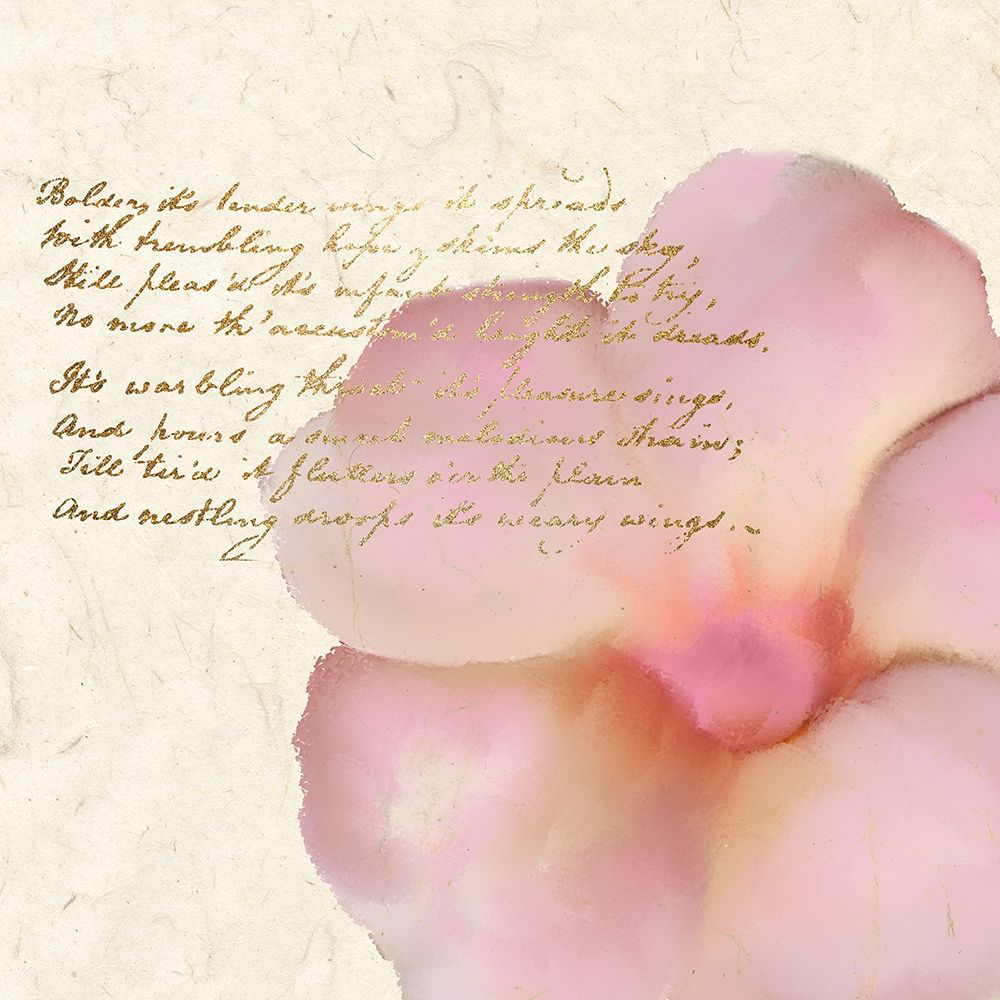 Bolder, it's tender wings it spreads
With trembling hope, & skims the sky,
Still pleas'd it's infant strength to try,
No more th' accustom'd height it dreads.
It's warbling throat it's pleasure sings,
And pours a sweet melodious strain;
Till tir'd it flutters o'er the plain
And nestling droops it's weary wings.